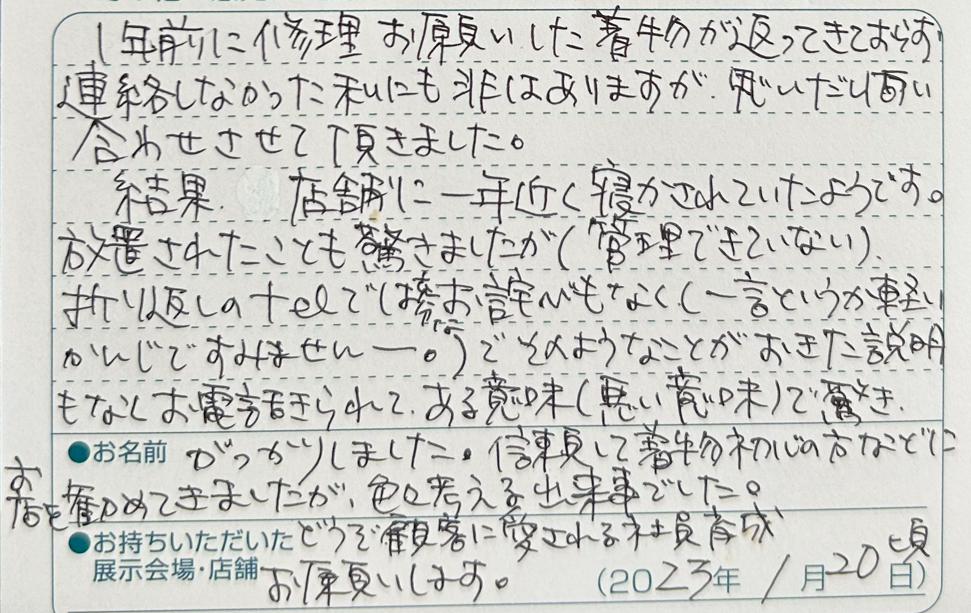 1年前に修理お願いした着物が返ってきておらず
連絡しなかった私にも非はありますが、思いだし問い
合わせさせて頂きました。
結果、店舗に一年近く寝かされていたようです。
放置されたことも驚きましたが(管理できていない)、
折り返しのtelでは お詫びもなく(一言というか軽い
かんじですみませんー。)でそのようなことがおきた説明
もなくお電話きられて、ある意味(悪い意味)で驚き、
●お名前 がっかりしました。信頼して着物初心の方などに
お店を勧めてきましたが、色々考える出来事でした。
●お持ちいただいた どうぞ顧客に愛される社員育成
展示会場・店舗 お願いします。 (2023年 1月20日)頃